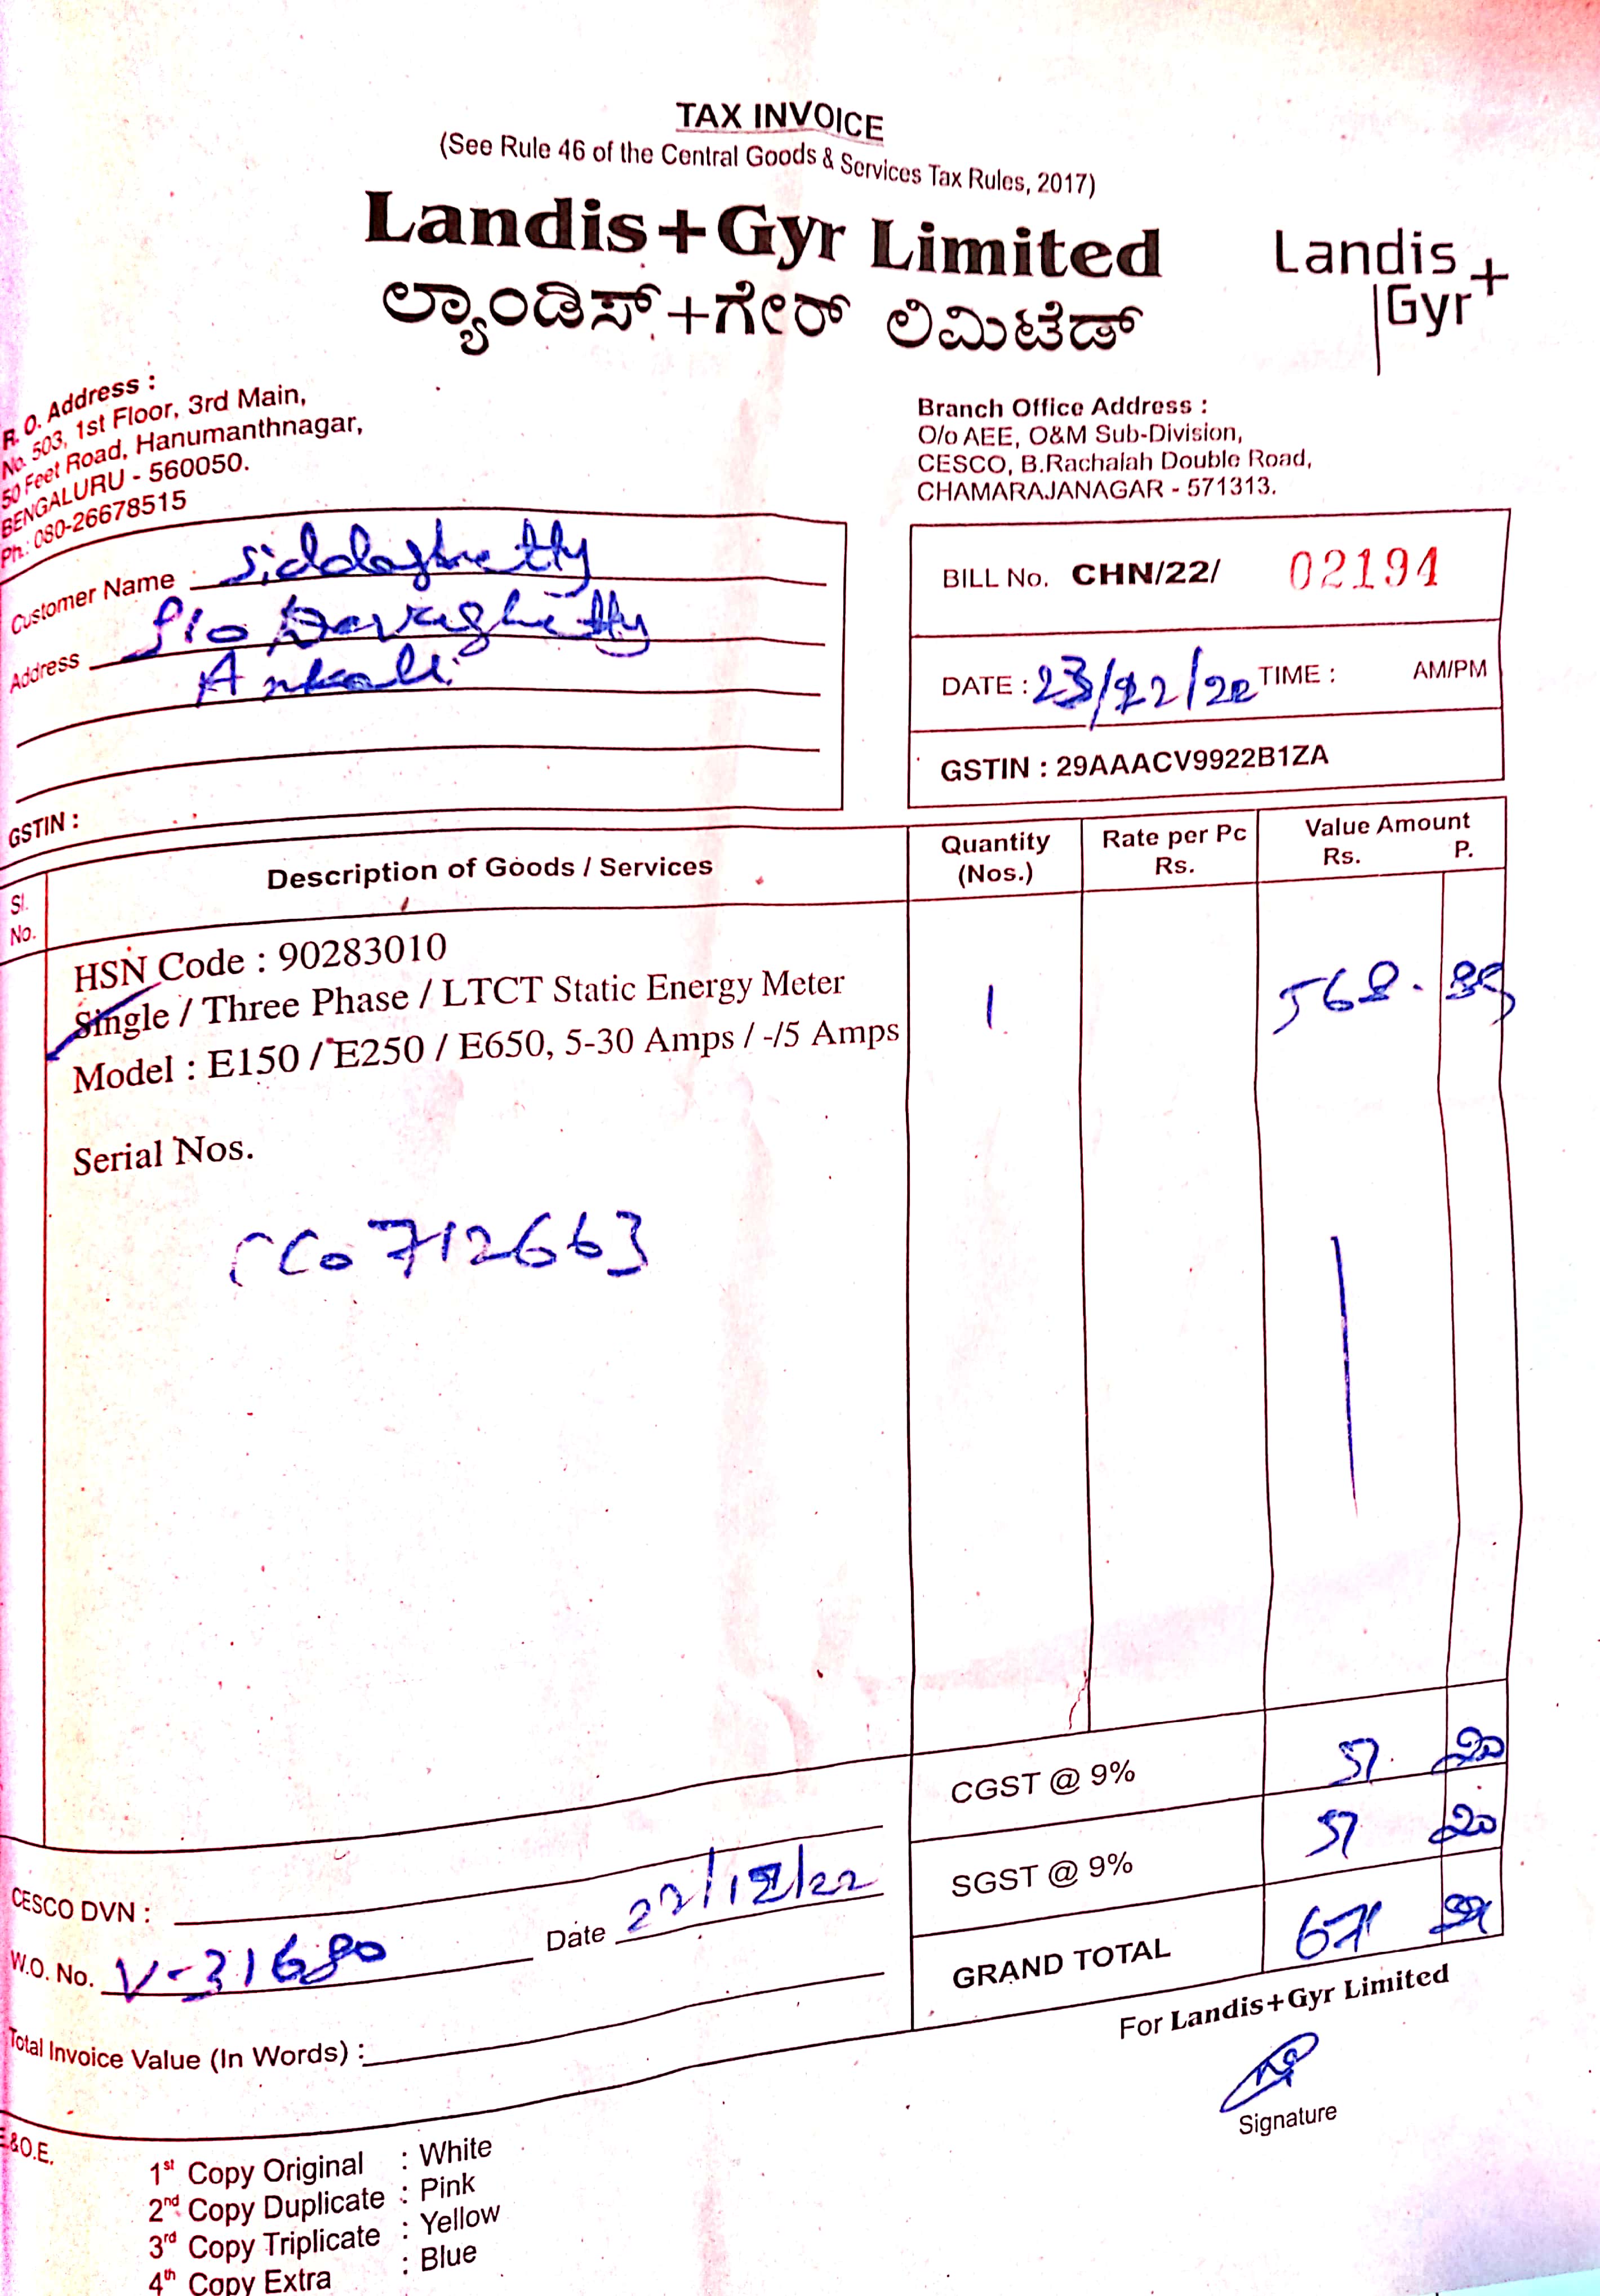 TAX INVOICE
(See Rule 46 of the Central Goods & Services Tax Rules, 2017)
Landis+Gyr Limited
ಲ್ಯಾಂಡಿಸ್+ಗೇರ್ ಲಿಮಿಟೆಡ್
Landis
Gyr+
R. O. Address :
No. 503, 1st Floor, 3rd Main,
50 Feet Road, Hanumanthnagar,
BENGALURU - 560050.
Ph.: 080-26678515
Branch Office Address :
O/o AEE, O&M Sub-Division,
CESCO, B.Rachaiah Double Road,
CHAMARAJANAGAR - 571313.
Customer Name Siddashetty
Address S/o
GSTIN :
BILL No. CHN/22/ 02194
DATE : 23/12/22 TIME : AM/PM
GSTIN : 29AAACV9922B1ZA
Sl. No. Description of Goods / Services Quantity (Nos.) Rate per Pc Rs. Value Amount Rs. P.
HSN Code : 90283010
Single / Three Phase / LTCT Static Energy Meter 1 568.
Model : E150 / E250 / E650, 5-30 Amps / -/5 Amps
Serial Nos.
CC0712663
CGST @ 9% 51. 20
SGST @ 9% 51 20
GRAND TOTAL 671
CESCO DVN :
W.O. No. V-31680 Date 22/12/22
Total Invoice Value (In Words) :
For Landis+Gyr Limited
Signature
E&O.E.
1st Copy Original : White
2nd Copy Duplicate : Pink
3rd Copy Triplicate : Yellow
4th Copy Extra : Blue